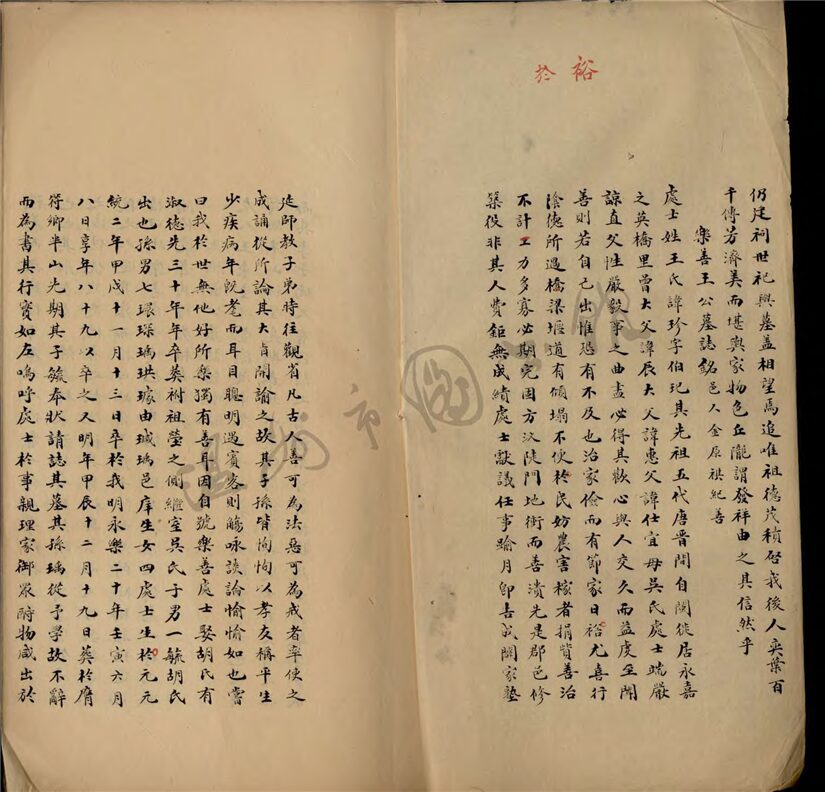 裕
於
仍建祠世祀與墓盖相望焉追唯祖德茂積啓我後人奕葉百
千傳芳濟美而堪與家物色丘隴謂發祥由之其信然乎
樂善王公墓誌銘邑人金原祺紀善
處士姓王氏諱珍字伯玘其先祖五代唐晋間自閩徙居永嘉
之英橋里曾大父諱辰大父諱惠父諱仕宜母吳氏處士端嚴
諒直父性嚴毅事之曲盡必得其歡心與人交久而益虔至聞
善則若自己出惟恐有不及也治家儉而有節家日裕尤喜行
陰德所過橋梁堰道有傾塌不便於民妨農害稼者捐貲善治
不計工力多寡必期完固方汊陡門地衝而善潰先是郡邑修
築役非其人費鉅無成績處士獻議任事踰月即告成闢家塾
延師教子弟時往觀省凡古人善可為法惡可為戒者率使之
成誦從所論其大旨開諭之故其子孫皆恂恂以孝友稱平生
少疾病年既耄而耳目聰明遇賓客則觴咏談論愉愉如也嘗
曰我於世無他好所樂獨有善耳因自號樂善處士娶胡氏有
淑德先三十年卒葬祔祖塋之側繼室吳氏子男一毓胡氏
出也孫男七環琛瑀珙璩由珹瑀邑庠生女四處士生於元元
統二年甲戌十一月十三日卒於我明永樂二十年壬寅六月
八日享年八十九以卒之又明年甲辰十二月十九日葬於膺
符鄉半山先期其子毓奉狀請誌其墓其孫瑀從予學故不辭
而為書其行實如左嗚呼處士於事親理家御眾酧物咸出於